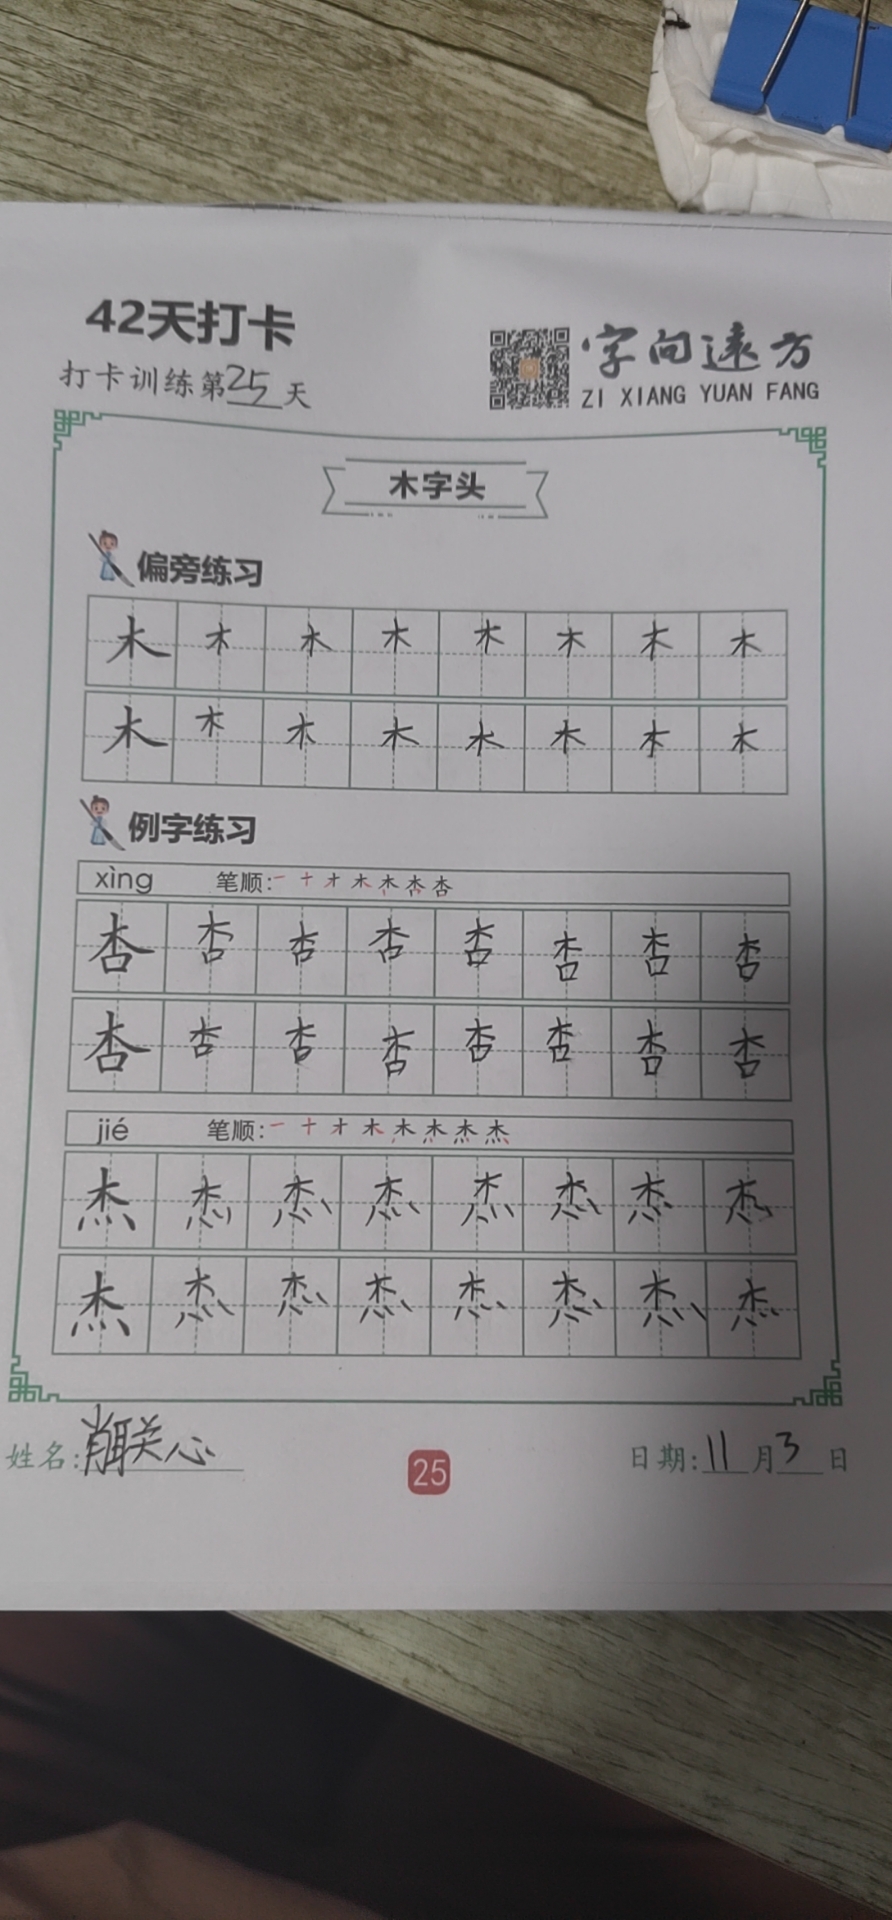 42天打卡
打卡训练第25天
字向远方
ZI XIANG YUAN FANG
木字头
偏旁练习
木 木 木 木 木 木 木 木
木 木 木 木 木 木 木 木
例字练习
xìng 笔顺:一 十 才 木 木 杏 杏
杏 杏 杏 杏 杏 杏 杏 杏
杏 杏 杏 杏 杏 杏 杏 杏
jié 笔顺:一 十 才 木
杰 杰 杰 杰 杰 杰 杰 杰
杰 杰 杰 杰 杰 杰 杰 杰
姓名:肖联关心
25
日期:11月3日